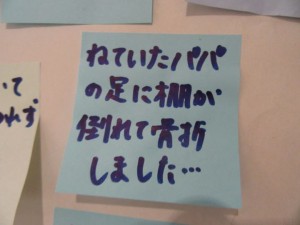 ねていたパパ
の足に棚が
倒れて骨折
しました…
いて
れず